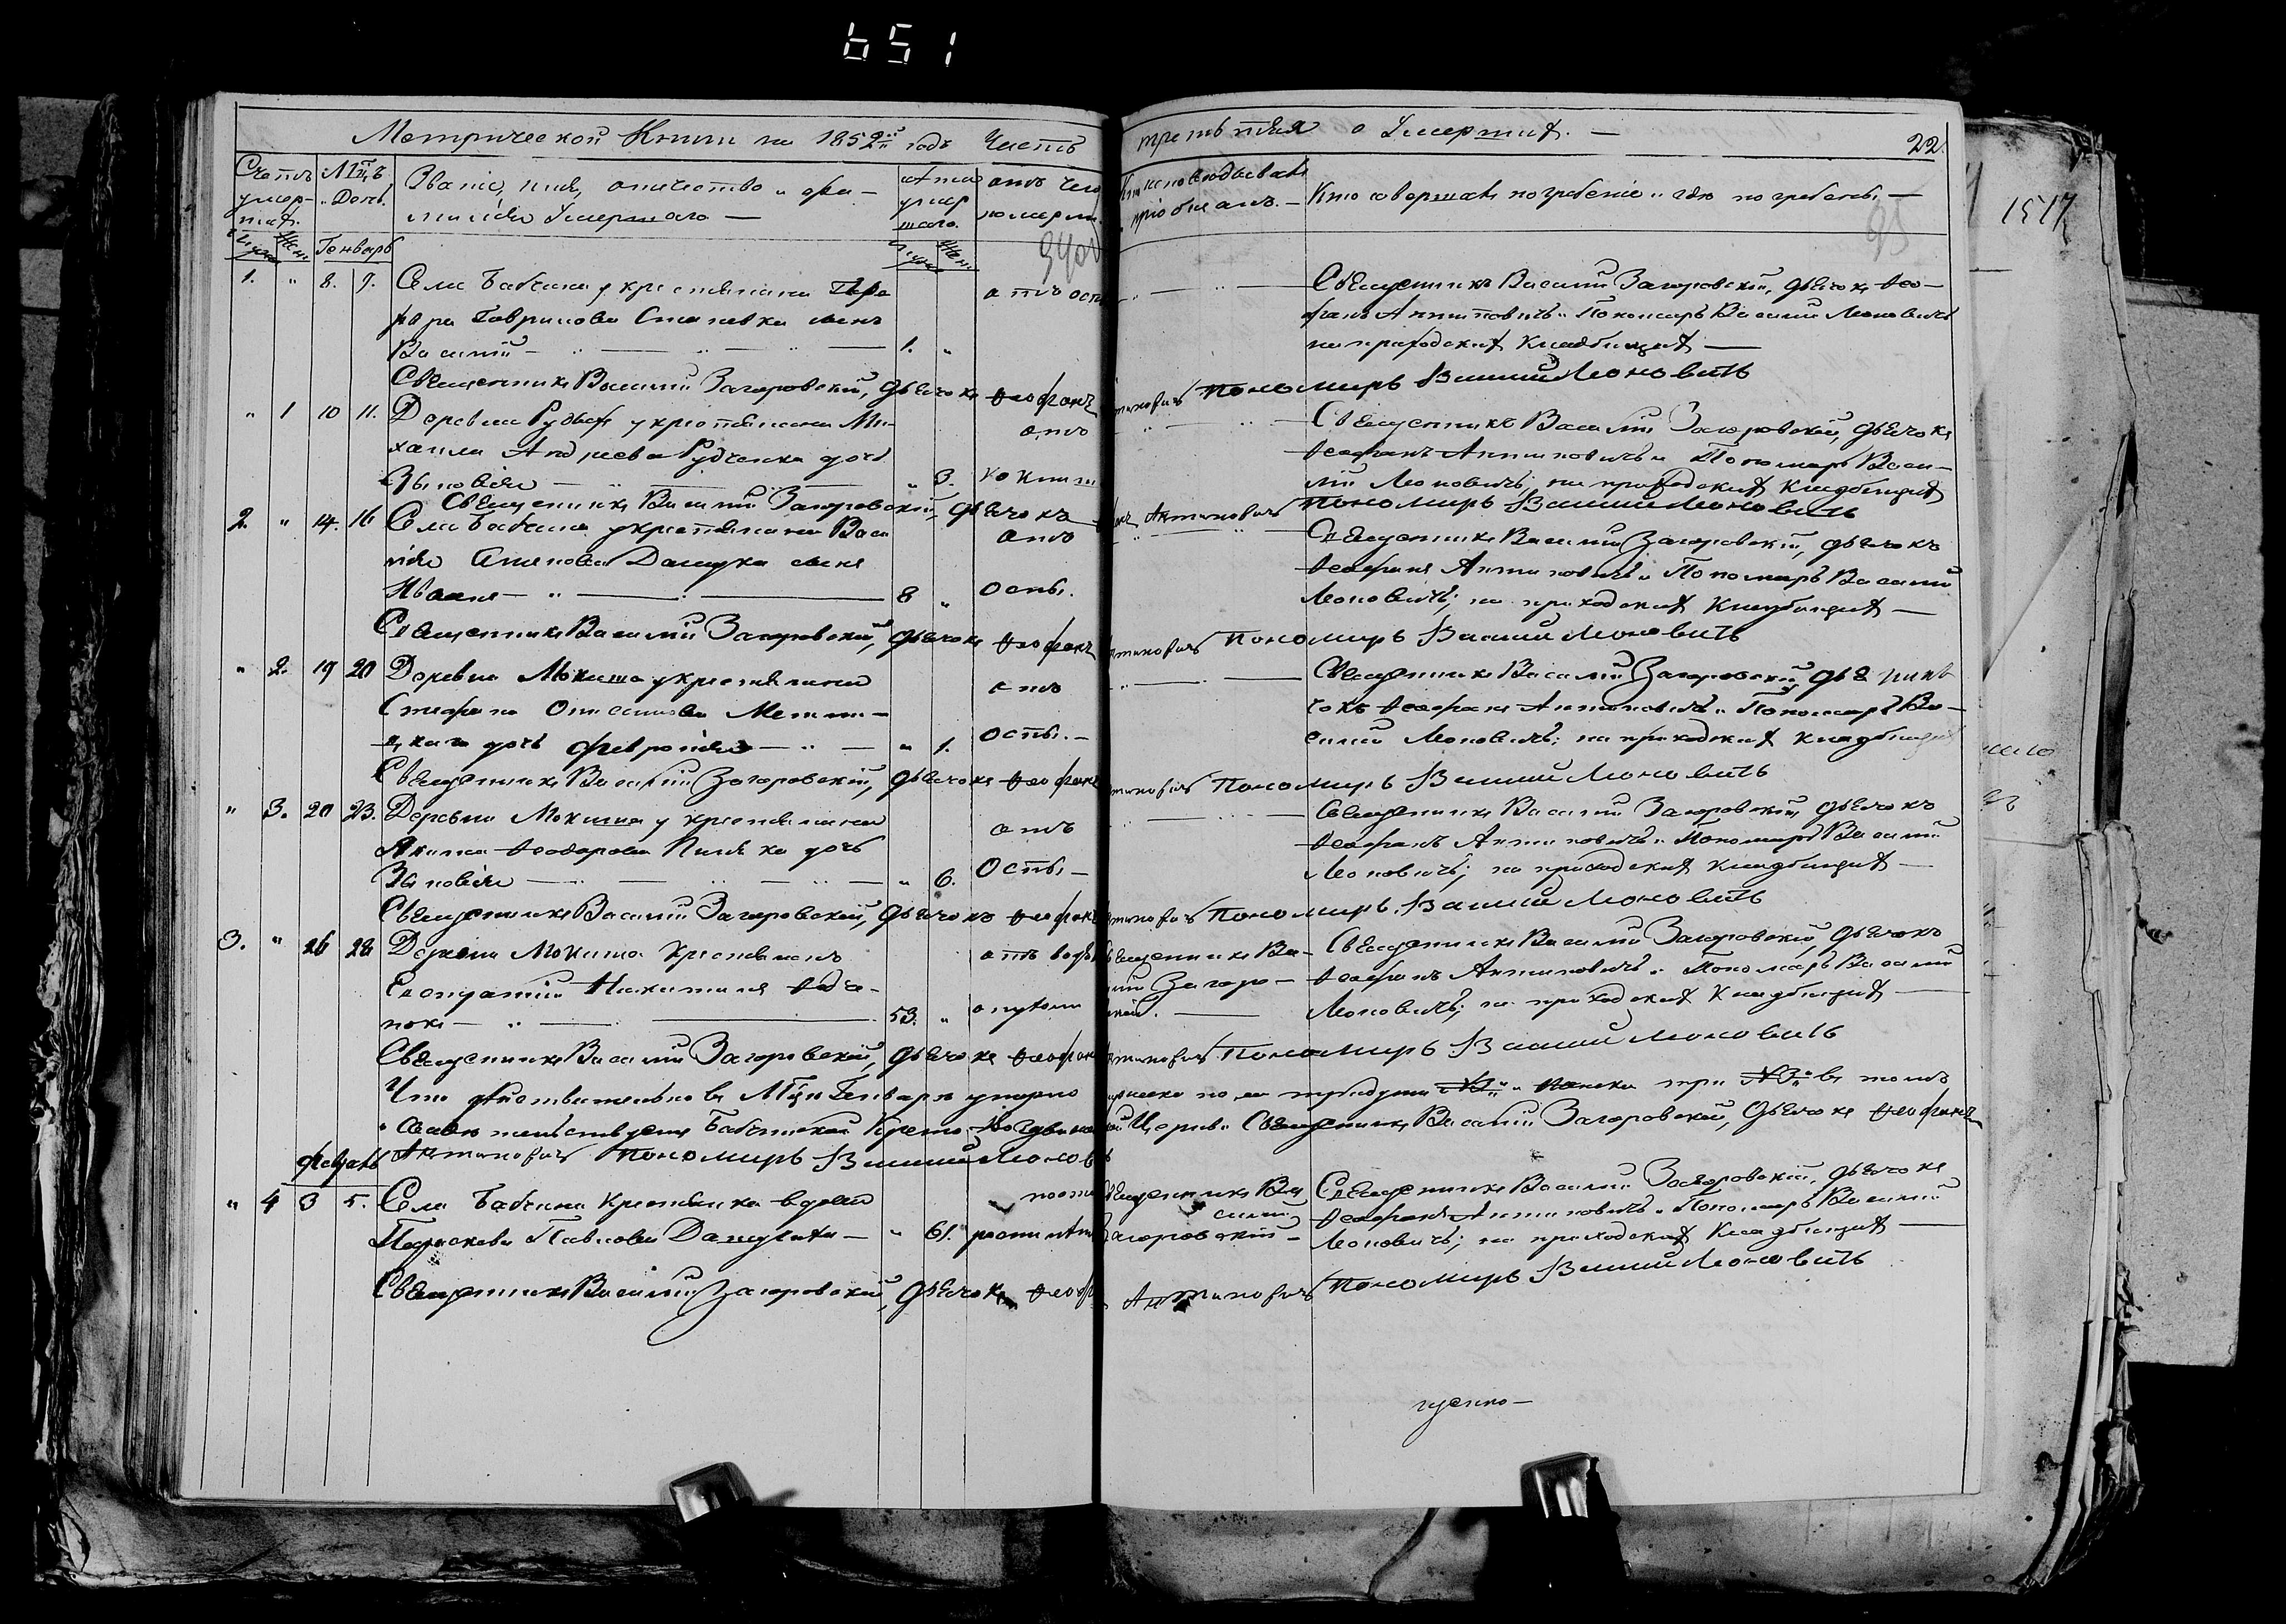 651
Метрической Книги на 1852й годъ Часть третья о Умершихъ. —
22.
Счетъ умер-шихъ.
Мцъ и День.
Званіе, имя, отчество и фа-
милія Умершаго —
лета умер шаго.
отъ чего померъ
Кто исповедывалъ и пріобщалъ. —
Кто совершалъ погребеніе и где погребены —
95
Генварь
1. " 8. 9. Села Бабчина у крестьянина
Гаврилова сынъ
Василій — 1. "
отъ оспы
Священникъ Василій Загоровскій, дьячокъ Ѳео-
фанъ Антиповичъ и Пономарь Василій Моновичъ
на приходскомъ кладбищѣ —
Священникъ Василій Загоровскій, дьячокъ Ѳеофанъ Антиповичъ Пономарь Василий Моновичъ
" 1 10 11. Деревни Рудыхъ у крестьянина Ми-
хаила Андреева Рудченка дочь
Зыновія — " 3.
отъ
Священникъ Василій Загоровскій, дьячокъ
Ѳеофанъ Антиповичъ и Пономарь Васи-
лій Моновичъ; на приходскомъ кладбищѣ
Священникъ Василій Загоровскій, дьячокъ Ѳеофанъ Антиповичъ Пономарь Василий Моновичъ
2. " 14. 16 Села Бабчина у крестьянина Васи
лія Данщука сына
Иванъ — 8 "
отъ
Оспы.
Священникъ Василій Загоровскій, дьячокъ
Ѳеофанъ Антиповичъ и Пономарь Василій
Моновичъ; на приходскомъ кладбищѣ —
Священникъ Василій Загоровскій, дьячокъ Ѳеофанъ Антиповичъ Пономарь Василий Моновичъ
" 2. 19 20 Деревни Мокиша у крестьянина
Стефана
дочь Февронія — " 1.
отъ
Оспы. —
Священникъ Василій Загоровскій, дья
чокъ Ѳеофанъ Антиповичъ и Пономарь Ва-
силій Моновичъ; на приходскомъ кладбищѣ
Священникъ Василій Загоровскій, дьячокъ Ѳеофанъ Антиповичъ Пономарь Василий Моновичъ
" 3. 20 23. Деревни Мокиша у крестьянина
Якима Ѳеодорова дочь
Зыновія — " 6.
отъ
Оспы —
Священникъ Василій Загоровскій, дьячокъ
Ѳеофанъ Антиповичъ и Пономарь Василій
Моновичъ; на приходскомъ кладбищѣ —
Священникъ Василій Загоровскій, дьячокъ Ѳеофанъ Антиповичъ Пономарь Василий Моновичъ
3. " 26 28 Деревни Мокиша крестьянинъ
— 53. "
отъ
Священникъ Ва-
силій Загоро-
вскій. —
Священникъ Василій Загоровскій, дьячокъ
Ѳеофанъ Антиповичъ и Пономарь Василій
Моновичъ; на приходскомъ кладбищѣ —
Священникъ Василій Загоровскій, дьячокъ Ѳеофанъ Антиповичъ Пономарь Василий Моновичъ
Что действительно въ Мцѣ Генварѣ умерло мужеска пола три №3" и женска три №3" въ томъ
и свидетельствуемъ Бабчинской Кресто-Воздвиженской Церкви Священникъ Василій Загоровскій, Дьячокъ Ѳеофанъ
Антиповичъ Пономарь Василий Моновичъ
Февраль
" 4 3 5. Села Бабчина крестьянка вдова
Параскева Павлова Данщукова — " 61.
Священникъ Ва
силій
Загоровскій —
Священникъ Василій Загоровскій, дьячокъ
Ѳеофанъ Антиповичъ и Пономарь Василій
Моновичъ; на приходскомъ кладбищѣ —
Священникъ Василій Загоровскій, дьячокъ Ѳеофанъ Антиповичъ Пономарь Василий Моновичъ
щенно —